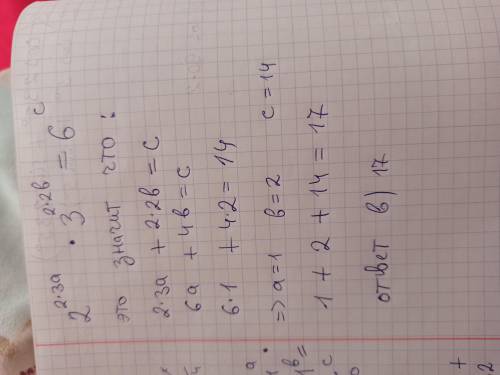 2^2·3a · 3^2·2в = 6^c
это значит что:
2·3a + 2·2в = c
6a + 4в = c
6·1 + 4·2 = 14
=> a=1 в=2 c=14
1 + 2 + 14 = 17
ответ в) 17